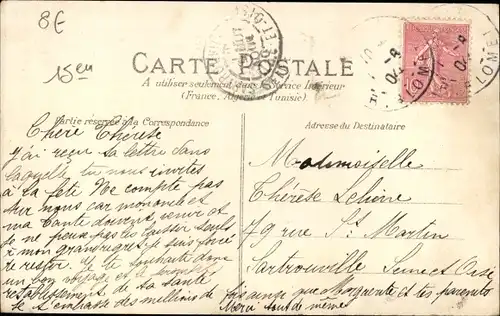 8€
15en
CARTE POSTALE
A utiliser seulement dans le Service Intérieur
(France, Algérie et Tunisie).
Partie réservée à la Correspondance
Adresse du Destinataire
Chère Thérèse
J'ai reçu ta lettre dans
laquelle tu nous invites
à la fête Ne compte pas
sur nous car mon oncle et
ma tante doivent venir et
je ne pense pas les laisser seuls
à mon grand regret je suis forcé
de rester. Je te souhaite donc
un bon voyage et le
rétablissement de ta santé
Je t'embrasse des millions de
fois ainsi que Marguerite et tes parents
Merci tout de même
Mademoiselle
Thérèse
79 rue St Martin
Sartrouville Seine et Oise